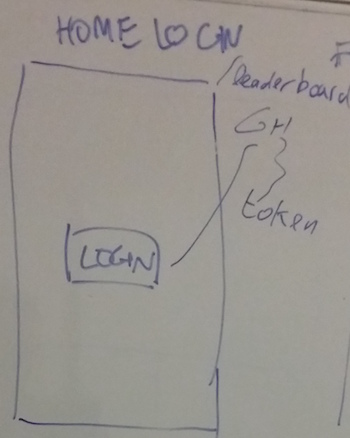 HOME LOGIN
/leaderboard
GH
token
LOGIN